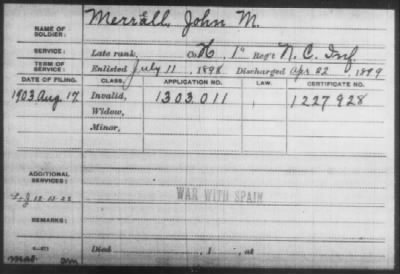 NAME OF SOLDIER: Merrall, John M.
SERVICE: Late rank, Co. H, 1" Reg't N. C. Inf.
TERM OF SERVICE: Enlisted July 11, 1898, Discharged Apr. 22 1899
DATE OF FILING. CLASS. APPLICATION NO. LAW. CERTIFICATE NO.
1903 Aug. 17. Invalid, 1303.011 1227928
Widow,
Minor,
ADDITIONAL SERVICES:
WAR WITH SPAIN
REMARKS:
Died , 1 , at